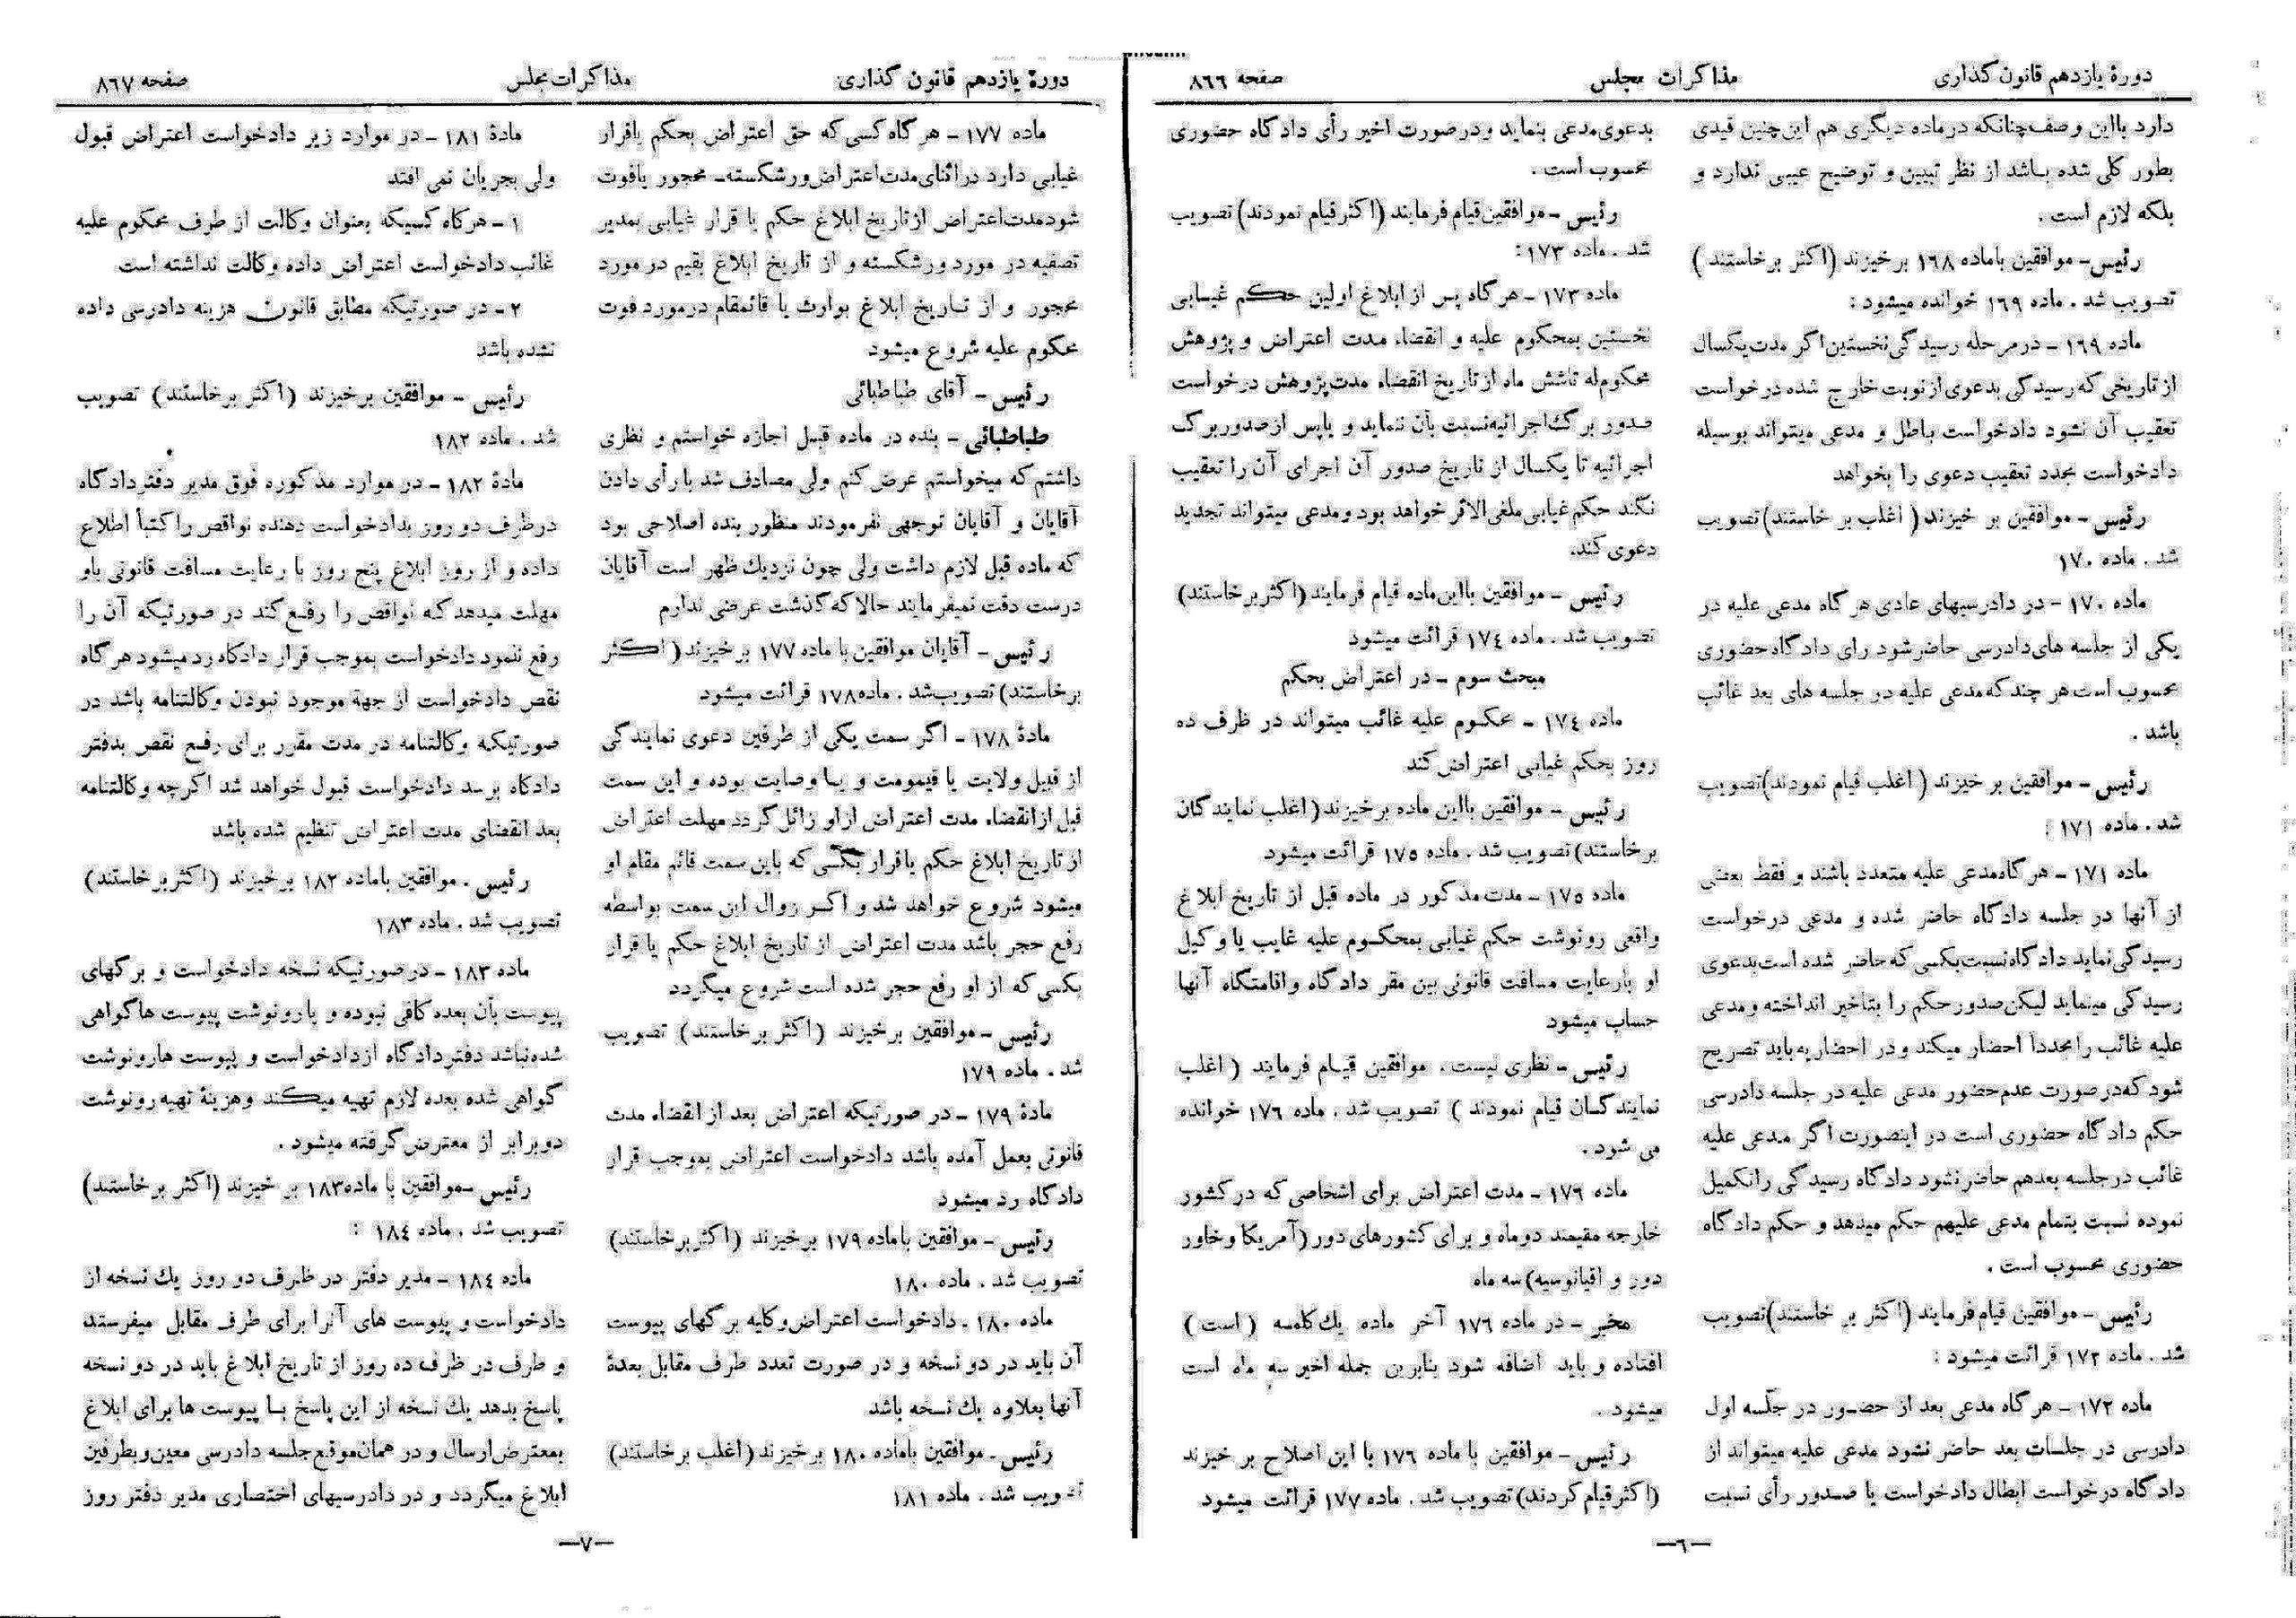 دورهٔ یازدهم قانون گذاری
مذاکرات مجلس
صفحه ۸٦٦
دارد بااین وصف چنانکه درماده دیگری هم این چنین قیدی
بطور کلی شده باشد از نظر تبیین و توضیح عیبی ندارد و
بلکه لازم است .
رئیس- موافقین باماده ۱٦۸ برخیزند (اکثر برخاستند)
تصویب شد . ماده ۱٦۹ خوانده میشود :
ماده ۱٦۹ - درمرحله رسیدگی نخستین اگر مدت یکسال
از تاریخی که رسیدگی بدعوی از نوبت خارج شده درخواست
تعقیب آن نشود دادخواست باطل و مدعی میتواند بوسیله
دادخواست مجدد تعقیب دعوی را بخواهد
رئیس - موافقین بر خیزند ( اغلب بر خاستند) تصویب
شد . ماده ۱۷۰
ماده ۱۷۰ - در دادرسیهای عادی هر گاه مدعی علیه در
یکی از جلسه های دادرسی حاضر شود رای دادگاه حضوری
محسوب است هر چند که مدعی علیه در جلسه های بعد غائب
باشد .
رئیس - موافقین بر خیزند ( اغلب قیام نمودند) تصویب
شد . ماده ۱۷۱ :
ماده ۱۷۱ - هر گاه مدعی علیه متعدد باشند و فقط بعضی
از آنها در جلسه دادگاه حاضر شده و مدعی درخواست
رسیدگی نماید دادگاه نسبت بکسی که حاضر شده است بدعوی
رسیدگی مینماید لیکن صدور حکم را بتاخیر انداخته و مدعی
علیه غائب را مجدداً احضار میکند و در احضاریه باید تصریح
شود که در صورت عدم حضور مدعی علیه در جلسه دادرسی
حکم دادگاه حضوری است در اینصورت اگر مدعی علیه
غائب در جلسه بعد هم حاضر نشود دادگاه رسیدگی را تکمیل
نموده نسبت بتمام مدعی علیهم حکم میدهد و حکم دادگاه
حضوری محسوب است .
رئیس - موافقین قیام فرمایند (اکثر بر خاستند) تصویب
شد . ماده ۱۷۲ قرائت میشود :
ماده ۱۷۲ - هر گاه مدعی بعد از حضور در جلسه اول
دادرسی در جلسات بعد حاضر نشود مدعی علیه میتواند از
دادگاه درخواست ابطال دادخواست یا صدور رأی نسبت
بدعوی مدعی بنماید و در صورت اخیر رأی دادگاه حضوری
محسوب است .
رئیس - موافقین قیام فرمایند (اکثر قیام نمودند) تصویب
شد . ماده ۱۷۳ :
ماده ۱۷۳ - هر گاه پس از ابلاغ اولین حکم غیابی
نخستین بمحکوم علیه و انقضاء مدت اعتراض و پژوهش
محکوم له تا شش ماه از تاریخ انقضاء مدت پژوهش درخواست
صدور برگ اجرائیه نسبت بآن ننماید و یا پس از صدور برگ
اجرائیه تا یکسال از تاریخ صدور آن اجرای آن را تعقیب
نکند حکم غیابی ملغی الاثر خواهد بود و مدعی میتواند تجدید
دعوی کند.
رئیس - موافقین بااین ماده قیام فرمایند (اکثر برخاستند)
تصویب شد . ماده ۱۷٤ قرائت میشود
مبحث سوم - در اعتراض بحکم
ماده ۱۷٤ - محکوم علیه غائب میتواند در ظرف ده
روز بحکم غیابی اعتراض کند
رئیس - موافقین بااین ماده برخیزند (اغلب نمایندگان
برخاستند) تصویب شد . ماده ۱۷۵ قرائت میشود
ماده ۱۷۵ - مدت مذکور در ماده قبل از تاریخ ابلاغ
واقعی رونوشت حکم غیابی بمحکوم علیه غایب یا وکیل
او بارعایت مسافت قانونی بین مقر دادگاه و اقامتگاه آنها
حساب میشود
رئیس - نظری نیست . موافقین قیام فرمایند ( اغلب
نمایندگان قیام نمودند ) تصویب شد . ماده ۱۷٦ خوانده
می شود .
ماده ۱۷٦ - مدت اعتراض برای اشخاصی که در کشور
خارجه مقیمند دوماه و برای کشورهای دور (آمریکا وخاور
دور و اقیانوسیه) سه ماه
مخبر - در ماده ۱۷٦ آخر ماده یک کلمه (است)
افتاده و باید اضافه شود بنابرین جمله اخیر سه ماه است
میشود .
رئیس - موافقین با ماده ۱۷٦ با این اصلاح بر خیزند
(اکثر قیام کردند) تصویب شد . ماده ۱۷۷ قرائت میشود
—٦—
دورهٔ یازدهم قانون گذاری
مذاکرات مجلس
صفحه ۸٦۷
ماده ۱۷۷ - هر گاه کسی که حق اعتراض بحکم یاقرار
غیابی دارد در اثنای مدت اعتراض ورشکسته - محجور یافوت
شود مدت اعتراض از تاریخ ابلاغ حکم یا قرار غیابی بمدیر
تصفیه در مورد ورشکسته و از تاریخ ابلاغ بقیم در مورد
محجور و از تاریخ ابلاغ بوارث یا قائمقام درمورد فوت
محکوم علیه شروع میشود
رئیس - آقای طباطبائی
طباطبائی - بنده در ماده قبل اجازه خواستم و نظری
داشتم که میخواستم عرض کنم ولی مصادف شد با رأی دادن
آقایان و آقایان توجهی نفرمودند منظور بنده اصلاحی بود
که ماده قبل لازم داشت ولی چون نزدیک ظهر است آقایان
درست دقت نمیفرمایند حالا که گذشت عرضی ندارم
رئیس - آقایان موافقین با ماده ۱۷۷ برخیزند (اکثر
برخاستند) تصویب شد . ماده ۱۷۸ قرائت میشود
مادهٔ ۱۷۸ - اگر سمت یکی از طرفین دعوی نمایندگی
از قبیل ولایت یا قیمومت و یا وصایت بوده و این سمت
قبل از انقضاء مدت اعتراض از او زائل گردد مهلت اعتراض
از تاریخ ابلاغ حکم یاقرار بکسی که باین سمت قائم مقام او
میشود شروع خواهد شد و اگر زوال این سمت بواسطه
رفع حجر باشد مدت اعتراض از تاریخ ابلاغ حکم یا قرار
بکسی که از او رفع حجر شده است شروع میگردد
رئیس - موافقین برخیزند (اکثر برخاستند) تصویب
شد . ماده ۱۷۹
مادهٔ ۱۷۹ - در صورتیکه اعتراض بعد از انقضاء مدت
قانونی بعمل آمده باشد دادخواست اعتراض بموجب قرار
دادگاه رد میشود
رئیس - موافقین باماده ۱۷۹ برخیزند (اکثر برخاستند)
تصویب شد . ماده ۱۸۰
ماده ۱۸۰ . دادخواست اعتراض و کلیه برگهای پیوست
آن باید در دو نسخه و در صورت تعدد طرف مقابل بعدهٔ
آنها بعلاوه یک نسخه باشد
رئیس . موافقین باماده ۱۸۰ برخیزند (اغلب برخاستند)
تصویب شد . ماده ۱۸۱
مادهٔ ۱۸۱ - در موارد زیر دادخواست اعتراض قبول
ولی بجریان نمی افتد
۱ - هرگاه کسیکه بعنوان وکالت از طرف محکوم علیه
غائب دادخواست اعتراض داده وکالت نداشته است
۲ - در صورتیکه مطابق قانون هزینه دادرسی داده
نشده باشد
رئیس - موافقین برخیزند (اکثر برخاستند) تصویب
شد . ماده ۱۸۲
مادهٔ ۱۸۲ - در موارد مذکوره فوق مدیر دفتر دادگاه
درظرف دو روز بدادخواست دهنده نواقص را کتباً اطلاع
داده و از روز ابلاغ پنج روز با رعایت مسافت قانونی باو
مهلت میدهد که نواقص را رفع کند در صورتیکه آن را
رفع ننمود دادخواست بموجب قرار دادگاه رد میشود هر گاه
نقص دادخواست از جهة موجود نبودن وکالتنامه باشد در
صورتیکه وکالتنامه در مدت مقرر برای رفع نقص بدفتر
دادگاه برسد دادخواست قبول خواهد شد اگرچه وکالتنامه
بعد انقضای مدت اعتراض تنظیم شده باشد
رئیس . موافقین باماده ۱۸۲ برخیزند (اکثر برخاستند)
تصویب شد . ماده ۱۸۳
ماده ۱۸۳ - در صورتیکه نسخه دادخواست و برگهای
پیوست بآن بعده کافی نبوده و یا رونوشت پیوست ها گواهی
شده نباشد دفتر دادگاه از دادخواست و پیوست ها رونوشت
گواهی شده بعده لازم تهیه میکند و هزینهٔ تهیه رونوشت
دو برابر از معترض گرفته میشود .
رئیس - موافقین با ماده ۱۸۳ بر خیزند (اکثر برخاستند)
تصویب شد . ماده ۱۸٤ :
ماده ۱۸٤ - مدیر دفتر در ظرف دو روز یک نسخه از
دادخواست و پیوست های آنرا برای طرف مقابل میفرستد
و طرف در ظرف ده روز از تاریخ ابلاغ باید در دو نسخه
پاسخ بدهد یک نسخه از این پاسخ با پیوست ها برای ابلاغ
بمعترض ارسال و در همان موقع جلسه دادرسی معین و بطرفین
ابلاغ میگردد و در دادرسیهای اختصاری مدیر دفتر روز
—۷—